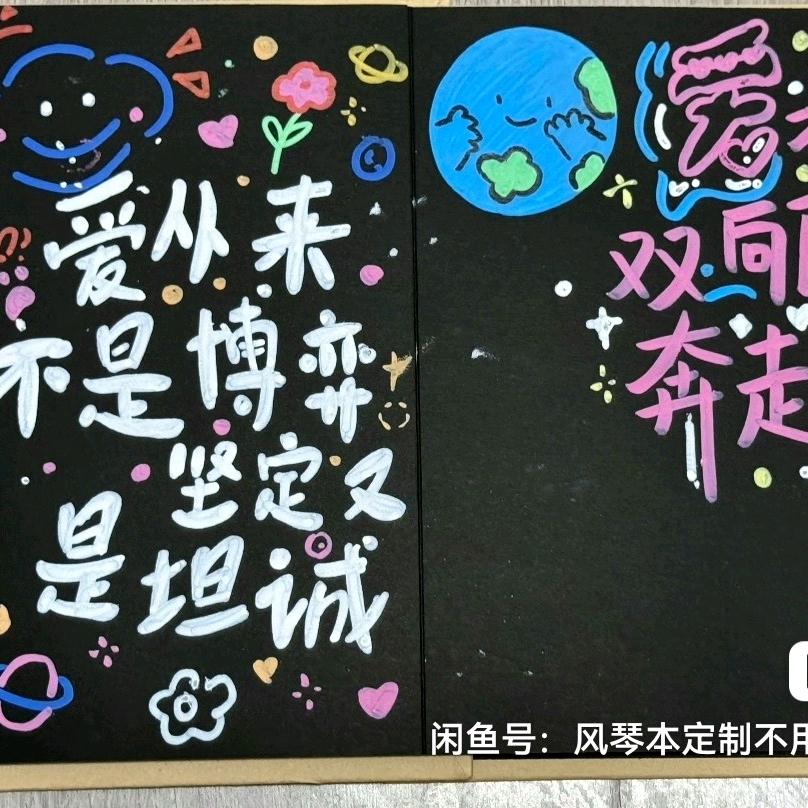 爱从来
不是博弈
坚定又
是坦诚
爱
双向
奔
闲鱼号：风琴本定制不用